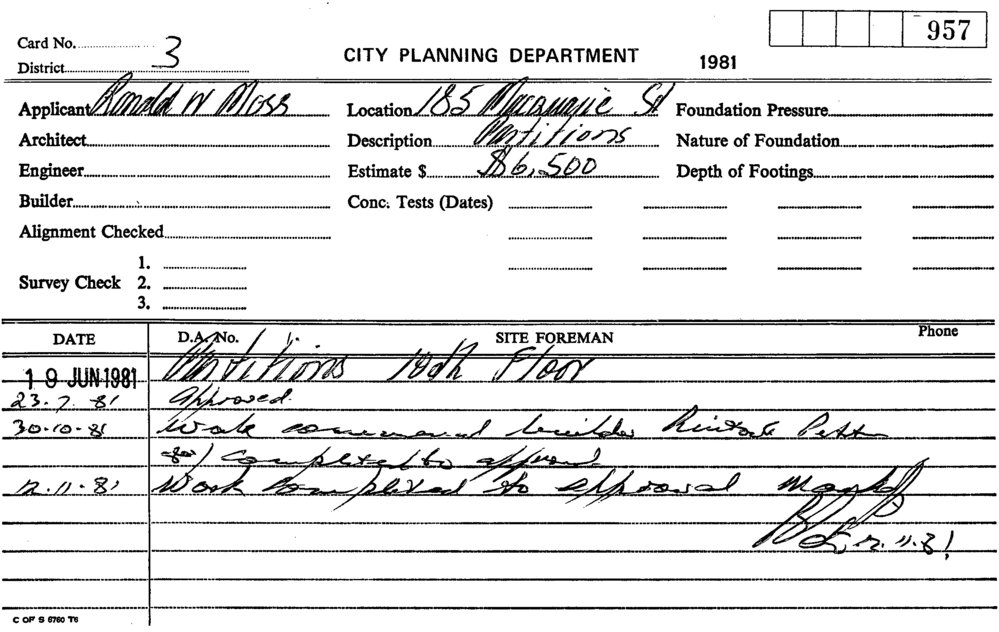 957
Card No. 3
District
CITY PLANNING DEPARTMENT 1981
Applicant Ronald W Moss Location 185 Macquarie St Foundation Pressure
Architect Description Partitions Nature of Foundation
Engineer Estimate $ $6,500 Depth of Footings
Builder Conc. Tests (Dates)
Alignment Checked
1.
Survey Check 2.
3.
DATE D.A. No. SITE FOREMAN Phone
19 JUN 1981 Partitions 10th Floor
23.7.81 Approved
30.10.81 Work commenced builder
completed to
12.11.81 Work completed to approval
12.11.81
C OF S 6760 T6